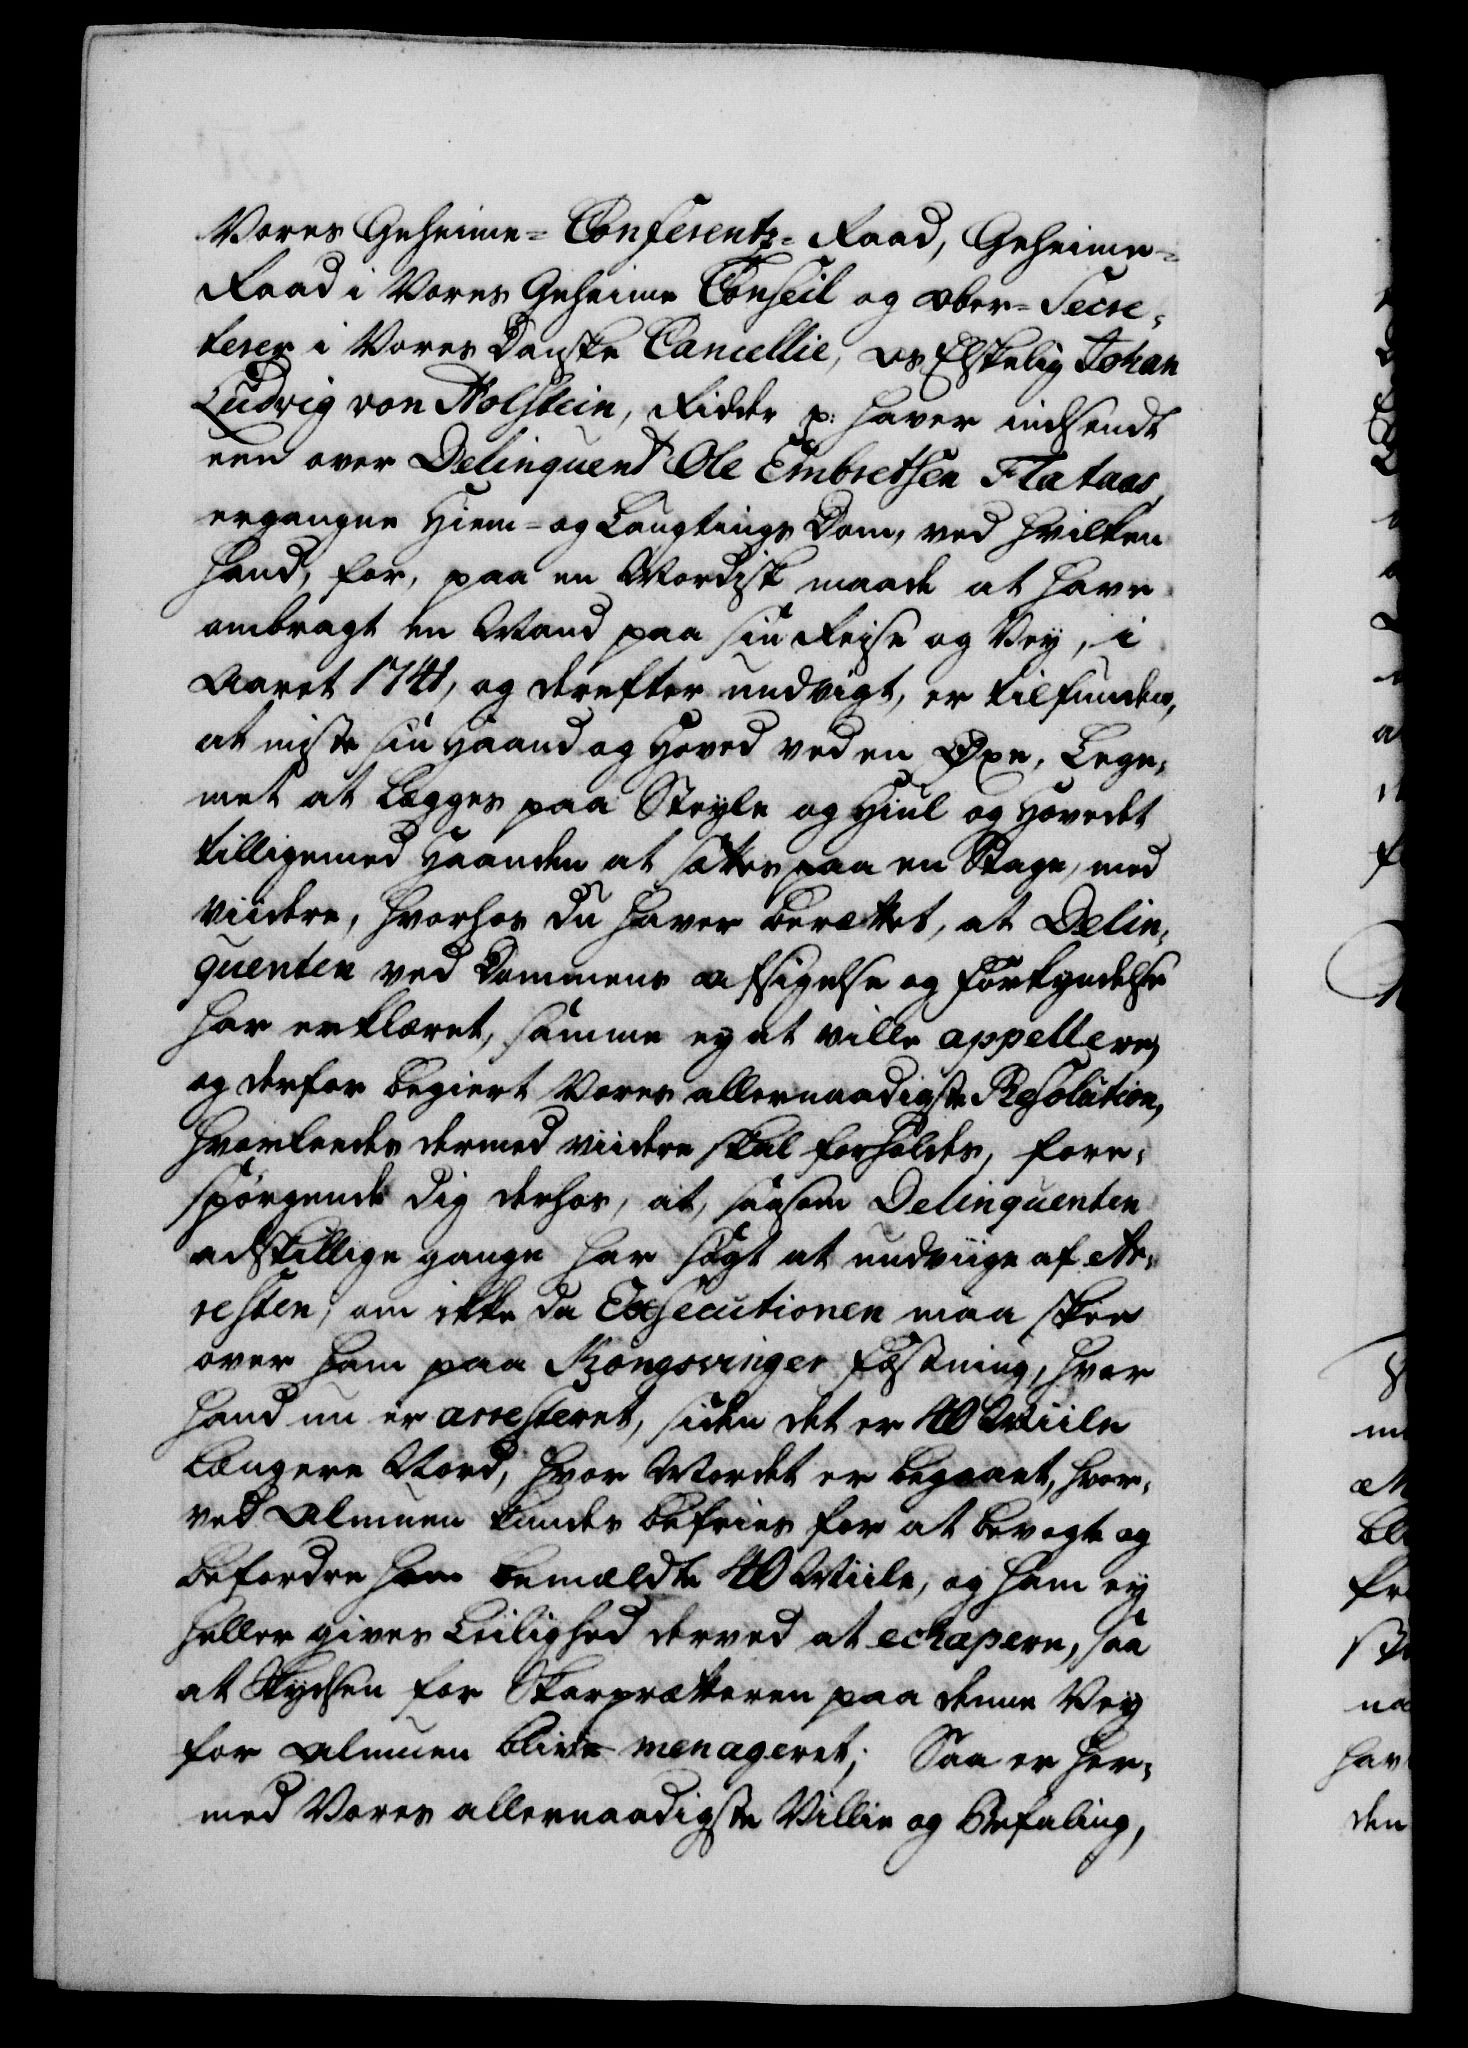 Vores Geheime=Conferentz=Raad, Geheime=
Raad i Vores Geheime Conseil og Ober=Secre=
terer i Vores Danske Cancellie, os Elskelig Johan
Ludvig von Holstein, Ridder p: haver indsendt
een over Delinquent Ole Embretsen Flataas,
ergangne Hiem= og Laugtings Dom, ved hvilken
hand, for, paa en Mordisk maade at have
ombragt en Mand paa sin Reise og Vey, i
Aaret 1741, og derefter undvigt, er tilfunden,
at miste sin Haand og Hoved ved en Øxe, Lege=
met at lægges paa Steyle og Hiul og Hovedet
tilligemed Haanden at sættes paa en Stage, med
viidere, hvorhos du haver berættet, at Delin=
quenten ved Dommens Afsigelse og Forkyndelse
har erklæret, samme ey at ville appellere,
og derfor begiert Vores allernaadigste Resolution,
hvorleedes dermed viidere skal forholdes, fore=
spørgende dig derhos, at, saasom Delinquenten
adskillige gange har søgt at undviige af Ar=
resten; om ikke da Executionen maa skee
over ham paa Kongsvinger Fæstning, hvor
hand nu er arresteret, siden det er 40 Miile
længere Nord, hvor Mordet er begaaet, hvor=
ved Almuen kundes befries for at bevogte og
befordre ham bemældte 40 Miile, og ham ey
heller gives Leilighed derved at echapere, saa
at Skydsen for Skarpretteren paa denne Vey
for Almuen blive menageret; Saa er her=
med Vores allernaadigste Villie og Befaling,